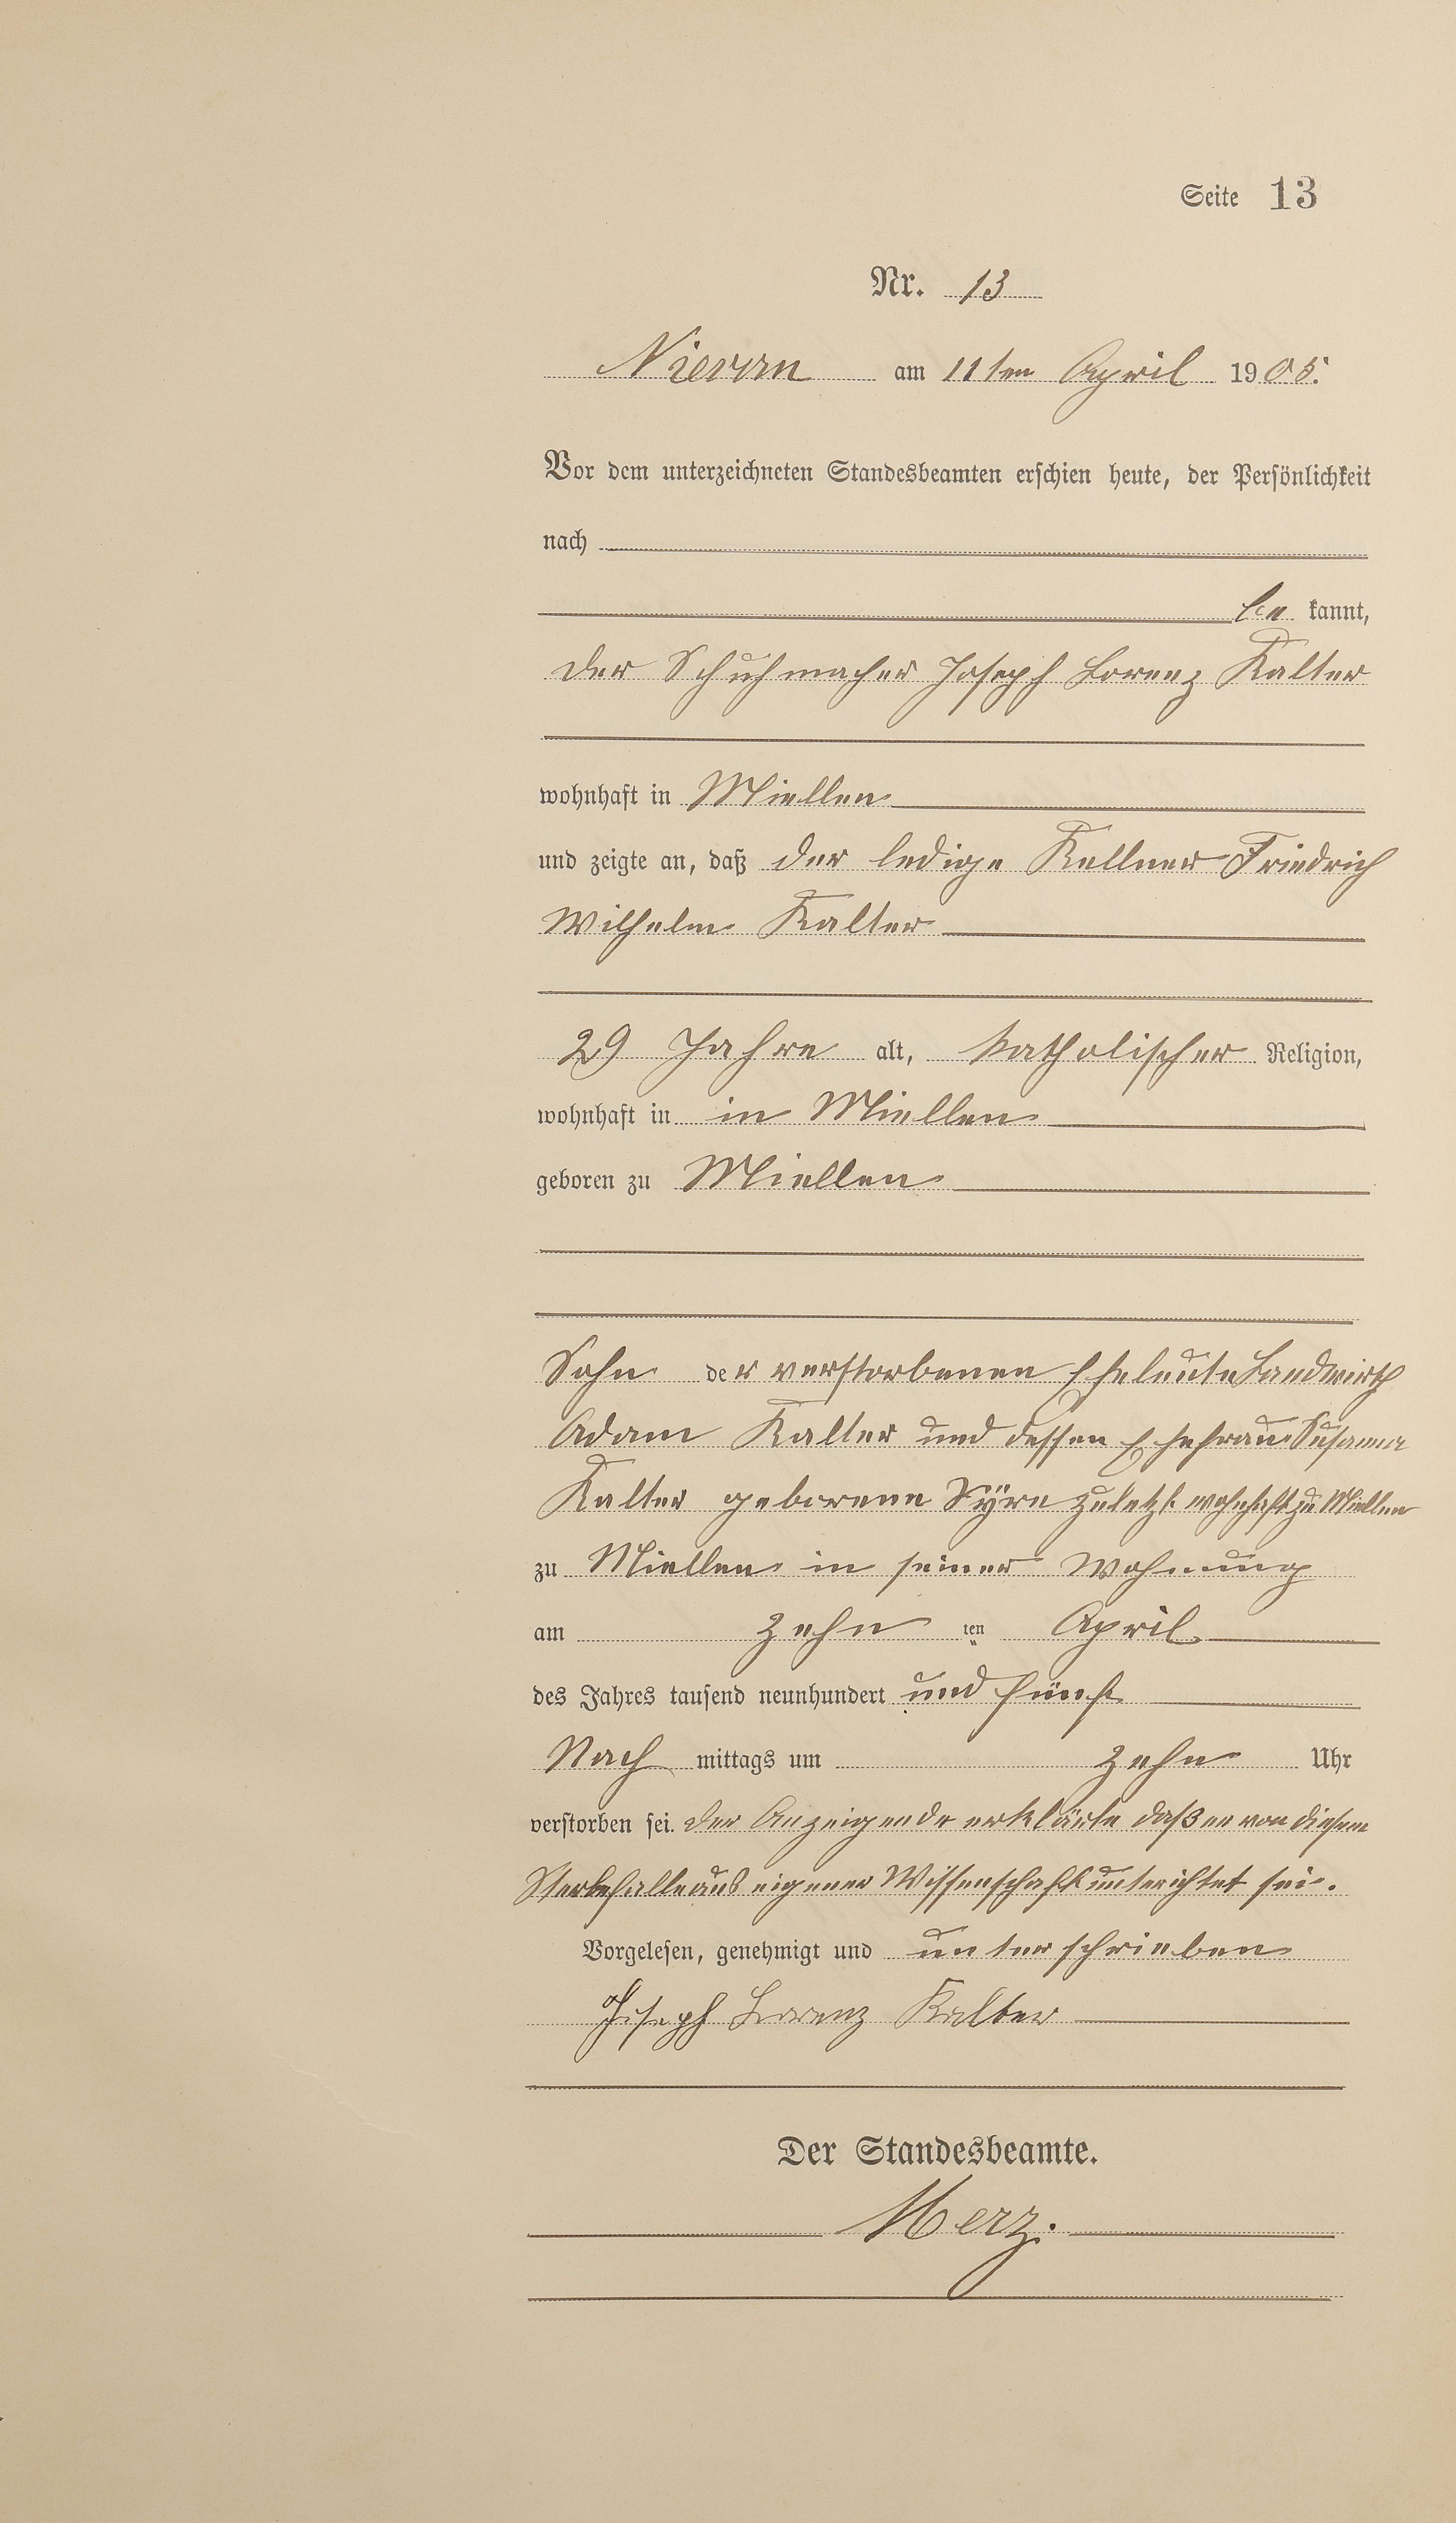 Seite 13
Nr. 13
Nievern am 11ten April 1905.
Vor dem unterzeichneten Standesbeamten erschien heute, der Persönlichkeit
nach
be kannt,
der Schuhmacher Joseph Lorenz Kalter
wohnhaft in Miellen
und zeigte an, daß der ledige Kellner Friedrich
Wilhelm Kalter
29 Jahre alt, katholischer Religion,
wohnhaft in in Miellen
geboren zu Miellen
Sohn der verstorbenen Eheleute Landwirth
Adam Kalter und dessen Ehefrau Susanna
Kalter geborene Syre zuletzt wohnhaft zu Miellen
zu Miellen in seiner Wohnung
am zehn ten April
des Jahres tausend neunhundert und fünf
Nach mittags um zehn Uhr
verstorben sei. Der Anzeigende erklärte daß er von diesem
Sterbefalle aus eigener Wissenschaft unterichtet sei.
Vorgelesen, genehmigt und unterschrieben
Joseph Lorenz Kalter
Der Standesbeamte.
Merz.